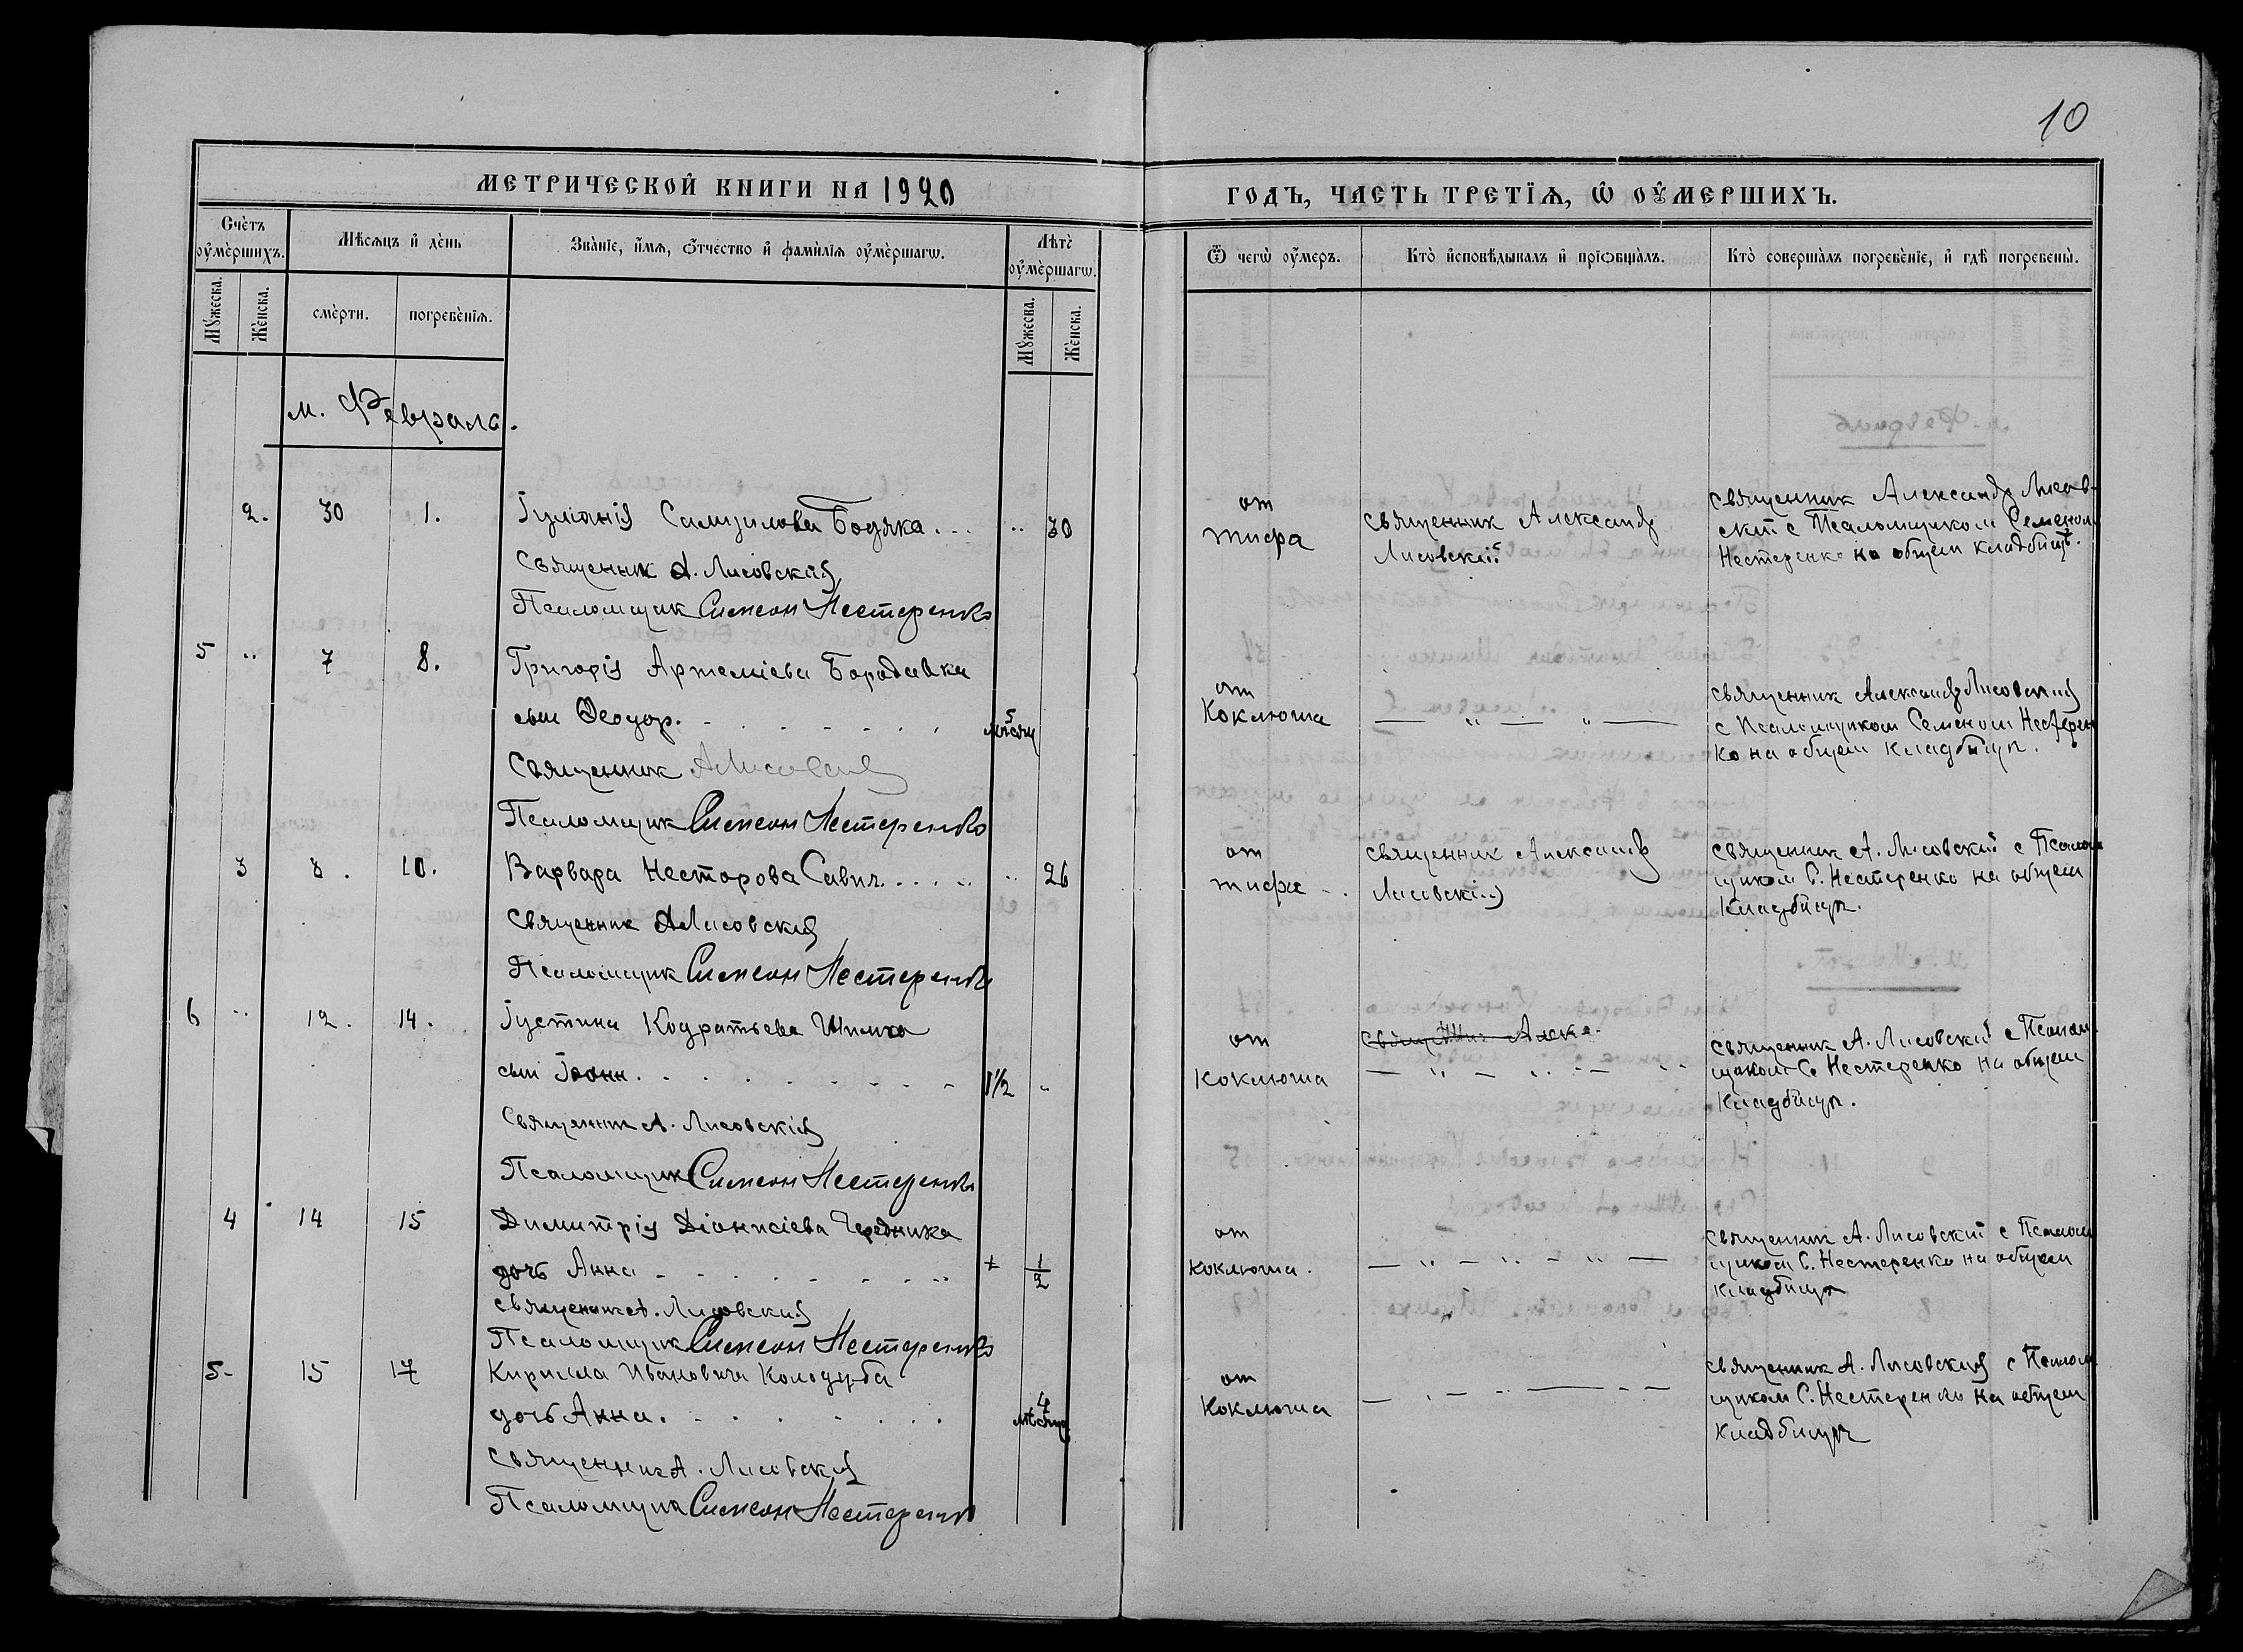 10
МЕТРИЧЕСКОЙ КНИГИ НА 1920
ГОДЪ, ЧАСТЬ ТРЕТІѦ, Ѡ ОУМЕРШИХЪ.
Счетъ оумершихъ.
Мѣсѧцъ и день
Званіе, имѧ, отчество и фамиліѧ оумершагѡ.
Лѣта оумершагѡ.
Ѿ чегѡ оумеръ.
Кто исповѣдывалъ и пріобщалъ.
Кто совершалъ погребеніе, и гдѣ погребены.
Мужеска.
Женска.
смерти.
погребеніѧ.
Мужеска.
Женска.
м. Февраль.
2. 30 1. Іуліанія Самуилова Бодяка . . . 30
Священник А. Лисовский
Псаломщик Симеон Нестеренко
от
тифа
священник Александр
Лисовский
священник Александр Лисов-
ский с Псаломщиком Семеном
Нестеренко на общем кладбищѣ.
5 " 7 8. Григорія Артеміева Бородавка
сын Феодор. 5 мѣсяц
Священник А Лисовский
Псаломщик Симеон Нестеренко
от
Коклюша
— " — " —
священник Александр Лисовский
с Псаломщиком Семеном Нестерен
ко на общем кладбищѣ.
3 8. 10. Варвара Несторова Савич . . . . . " 26
Священник А Лисовский
Псаломщик Симеон Нестеренко
от
тифа
священник Александр
Лисовскій
священник А. Лисовский с Псалом
щиком С. Нестеренко на общем
Кладбищѣ.
6 " 12. 14. Іустина Кодратьева Шишко
сын Іоанн. 1 1/2 "
Священник А. Лисовскій
Псаломщик Симеон Нестеренко
от
коклюша
Алекс.
— " — " — "
священник А. Лисовский с Псалом
щиком С. Нестеренко на общем
Кладбищѣ.
4 14 15 Димитрія Діонисіева Чередника
дочь Анна 1/2
священник А. Лисовский
Псаломщик Симеон Нестеренко
от
коклюша.
— " — " — " —
священник А. Лисовский с Псалом
щиком С. Нестеренко на общем
кладбищѣ
5- 15 17 Кирилла Ивановича Колодуба
дочь Анна. 4 мѣсяц
Священник А. Лисовский
Псаломщик Симеон Нестеренко
от
Коклюша
священник А. Лисовский с Псалом
щиком С. Нестеренко на общем
Кладбищѣ